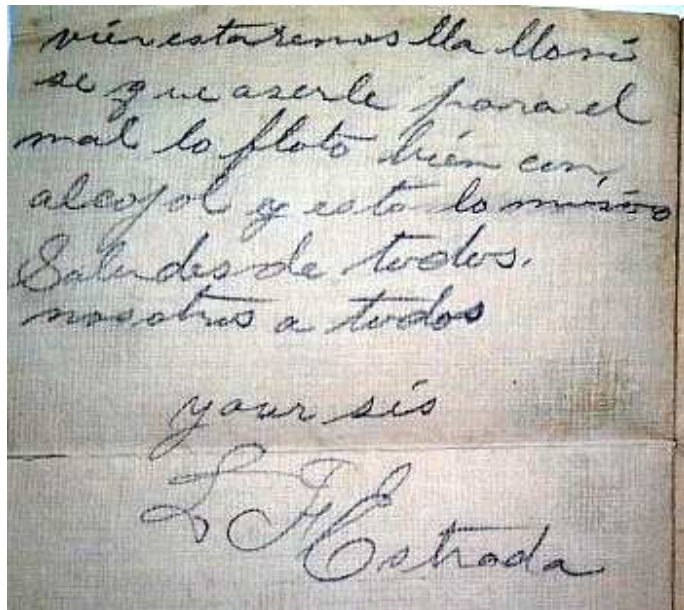 vien estaremos lla llo ni
se que aserle para el
mal lo floto bien con,
alcojol y esta lo mismo
Saludes de todos.
nosotros a todos
your sis
L F Estrada